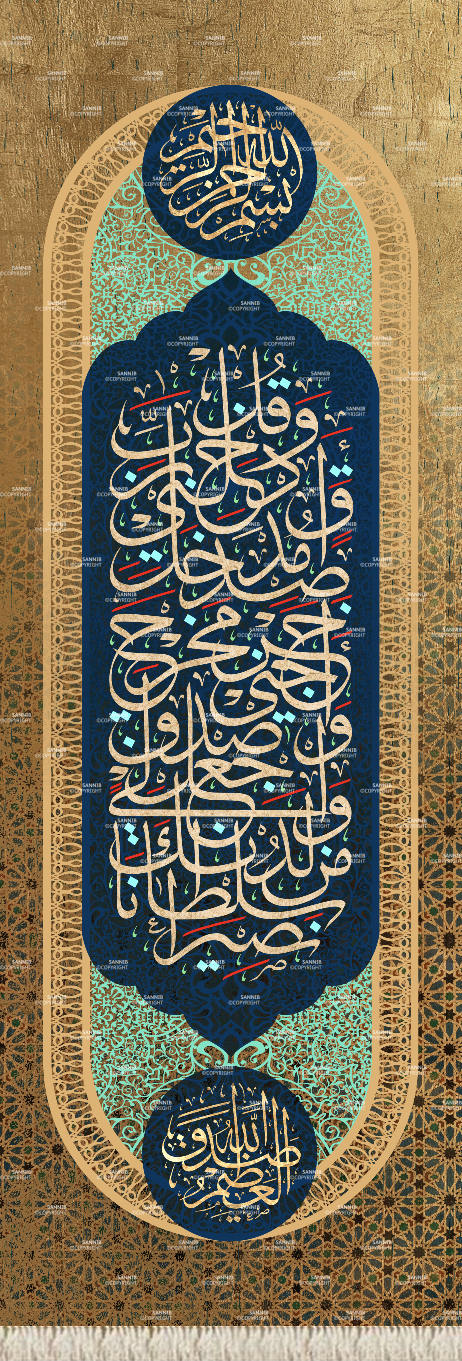 بسم الله الرحمن الرحيم
وقل رب
أدخلني
مدخل
صدق وأ
خرجني مخرج
صدق و
اجعل لي
من لدنك
سلطانا
نصيرا
صدق الله العظيم
SANNIB
©COPYRIGHT